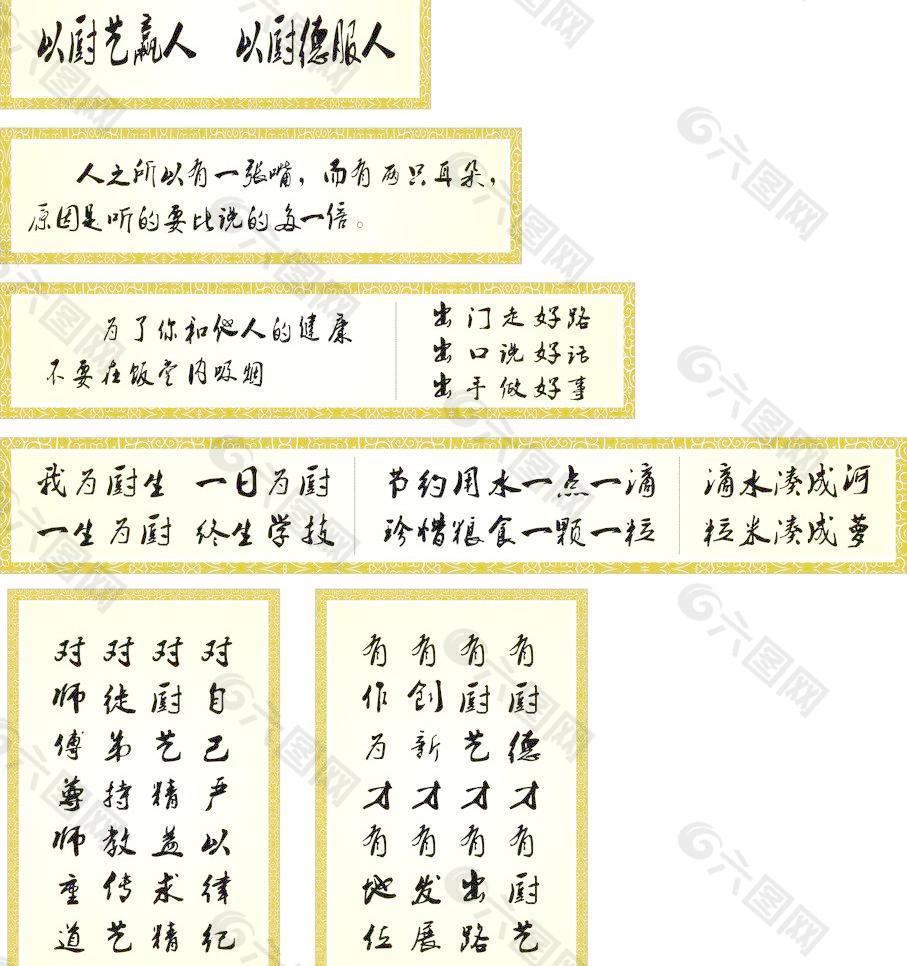 以厨艺赢人 以厨德服人
人之所以有一张嘴，而有两只耳朵，
原因是听的要比说的多一倍。
为了你和他人的健康
不要在饭堂内吸烟
出门走好路
出口说好话
出手做好事
我为厨生 一日为厨
一生为厨 终生学技
节约用水一点一滴
珍惜粮食一颗一粒
滴水凑成河
粒米凑成萝
对自己严以律纪
对厨艺精益求精
对徒弟持教传艺
对师傅尊师重道
有厨德才有厨艺
有厨艺才有出路
有创新才有发展
有作为才有地位
六图网